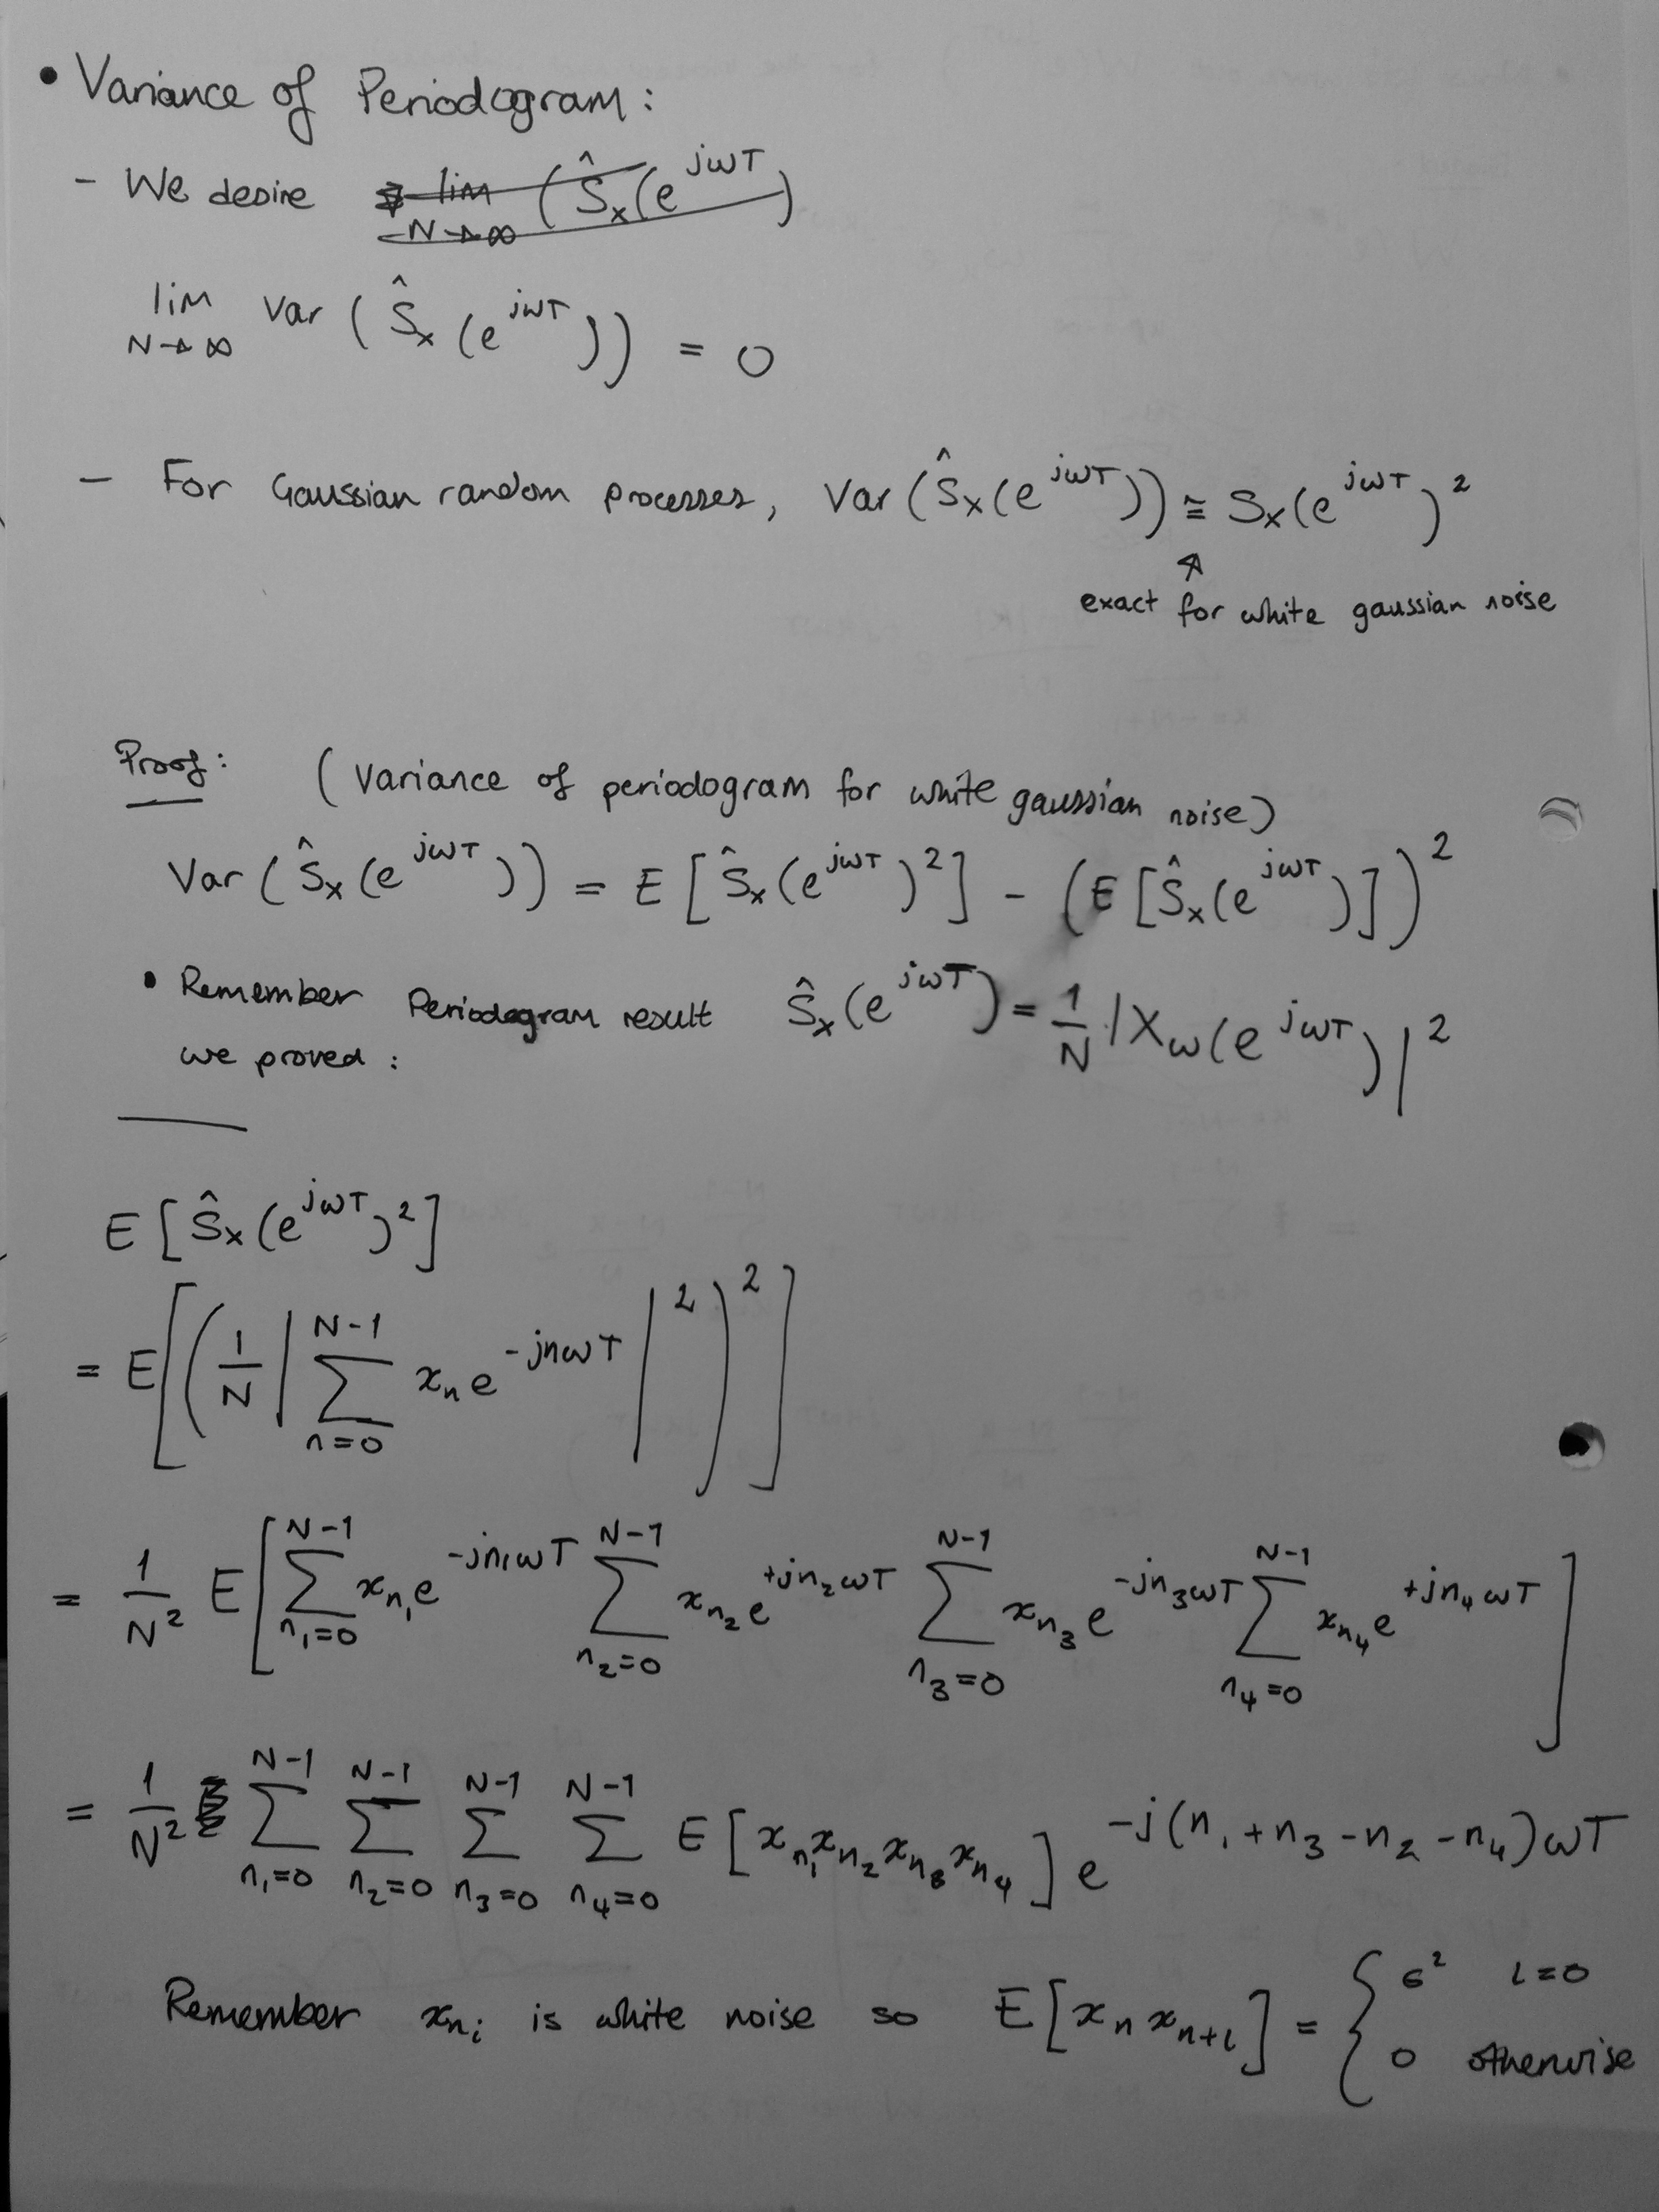 • Variance of Periodogram:
- We desire lim N→∞ (Ŝx(e^jωT)
lim N→∞ Var (Ŝx (e^jωT)) = 0
- For Gaussian random processes, Var (Ŝx(e^jωT)) ≅ Sx(e^jωT)^2
↑
exact for white gaussian noise
Proof: (Variance of periodogram for white gaussian noise)
Var (Ŝx(e^jωT)) = E [Ŝx(e^jωT)^2] - (E [Ŝx(e^jωT)])^2
• Remember Periodogram result Ŝx(e^jωT) = 1/N |Xw(e^jωT)|^2
we proved:
E [Ŝx(e^jωT)^2]
= E[(1/N |∑_{n=0}^{N-1} x_n e^{-jnωT}|^2)^2]
= 1/N^2 E[∑_{n1=0}^{N-1} x_{n1} e^{-jn1ωT} ∑_{n2=0}^{N-1} x_{n2} e^{+jn2ωT} ∑_{n3=0}^{N-1} x_{n3} e^{-jn3ωT} ∑_{n4=0}^{N-1} x_{n4} e^{+jn4ωT}]
= 1/N^2 ∑_{n1=0}^{N-1} ∑_{n2=0}^{N-1} ∑_{n3=0}^{N-1} ∑_{n4=0}^{N-1} E [x_{n1} x_{n2} x_{n3} x_{n4}] e^{-j(n1+n3-n2-n4)ωT}
Remember x_{ni} is white noise so E[x_n x_{n+l}] = { σ^2 l=0
0 otherwise